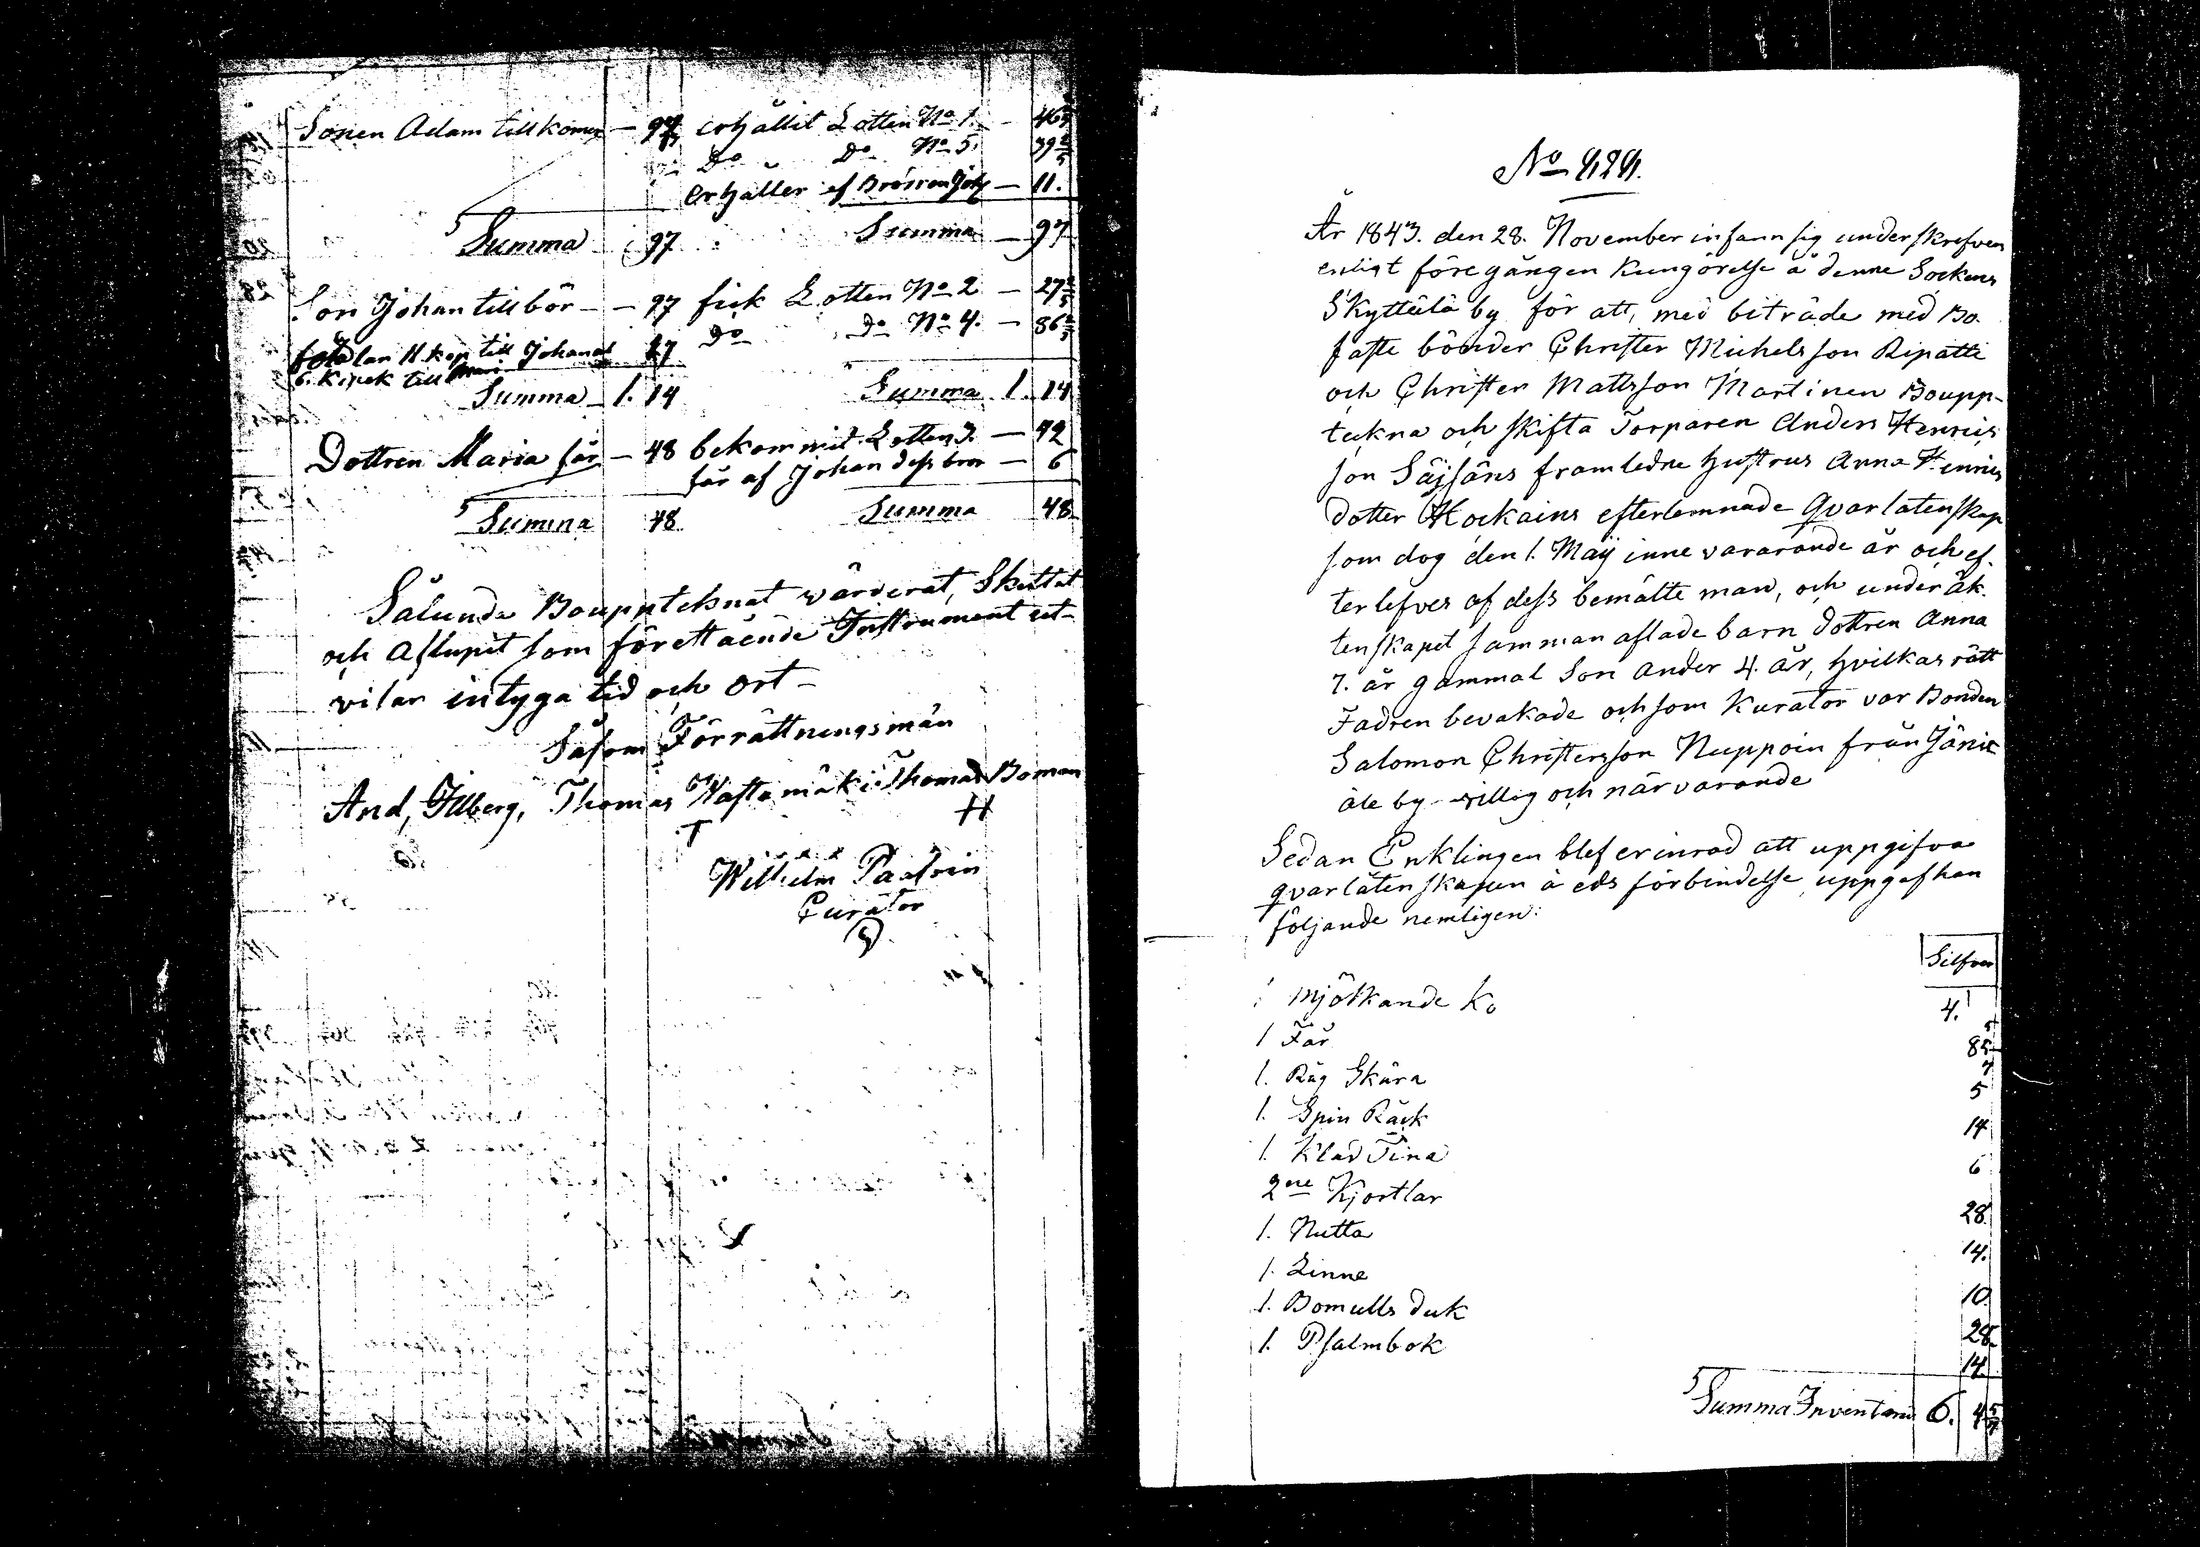 Sonen Adam tillkomer — 97 erhållit Lotten No 1. — 46
Do Do No 5. 39 2/5
erhåller af Brodren Joh — 11.
Summa 97 Summa — 97
Son Johan tillbör — 97 fick Lotten No 2 — 27 2/5
Do Do No 4. — 86 2/5
11 kop till 17
6. Kopek till
Summa 1. 14 Summa 1. 14
Dottren Maria får — 48 bekommit Lotten 3. — 42
får af Johan dess bror — 6
Summa 48 Summa 48
Sålunda Bouppteknat värderat, Skiftat
och Aflupit som förestående Instrument ut-
visar intyga tid och ort —
Såsom Förrättningsmän
And, Illberg, Thomas Thomas Boman
Wilhelm
Curator
No 424.
År 1843. den 28. November infann sig underskrefven
enligt föregången Kungörelse å denne Sockens
Skyttälä by för att, med biträde med Bo
faste bönder Christer Michelsson Ripatti
och Christer Mattsson Martinen Boupp-
tekna och skifta Torparen Anders Henrics
son Säjsäns framledne hustrus Anna Henrics
dotter Hockains efterlemnade Qvarlatenskap
som dog den 1. Maij inne vararande år och ef-
terlefves af dess bemälte man, och under äk-
tenskapet samman aflade barn dottren Anna
7. år gammal Son Ander 4. år, hvilkas rätt
Fadren bevakade och som Kurator var Bonden
Salomon Christersson Nuppoin från
by villig och närvarande
Sedan Enklingen blef erinrad att uppgifva
qvarlåtenskapen å eds förbindelse uppgaf han
följande nemligen:
Silfver
1 Mjölkande Ko 4.
1 Får 85 5/7
1. Råg Skära 5
1. Spin Råck 14
1. Kläd Tina 6
2ne Kjortlar 28
1. Nutta 14.
1. Linne 10
1. Bomulls duk 28
1. Psalmbok 14
Summa Inventarii 6. 4 5/7